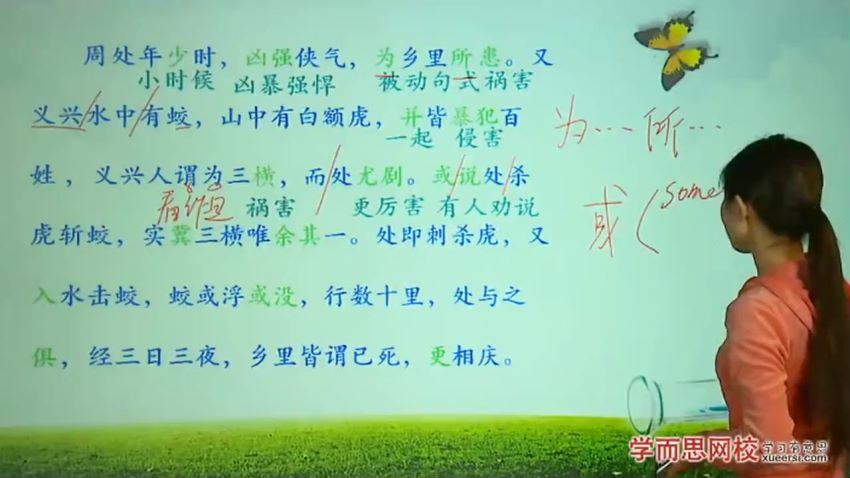 周处年少时，凶强侠气，为乡里所患。又
小时候 凶暴强悍 被动句式 祸害
义兴水中有蛟，山中有白额虎，并皆暴犯百
一起 侵害
为…所…
姓，义兴人谓为三横，而处尤剧。或说处杀
看作是 祸害 更厉害 有人劝说
或(some
虎斩蛟，实冀三横唯余其一。处即刺杀虎，又
入水击蛟，蛟或浮或没，行数十里，处与之
俱，经三日三夜，乡里皆谓已死，更相庆。
学而思网校 学习有意思
xueersi.com